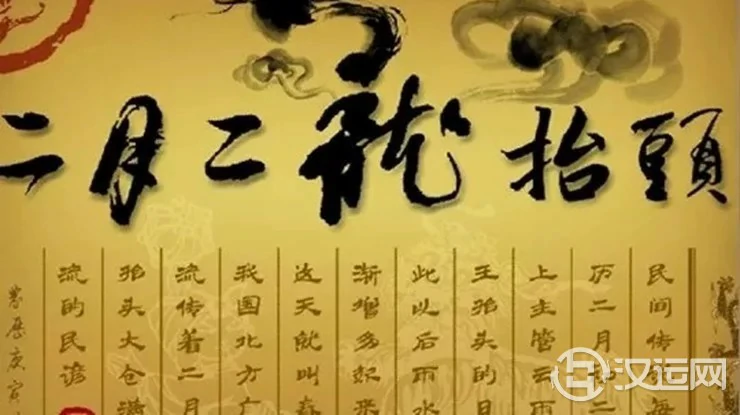 二月二龍抬頭
民间传说每
历二月初二
上主管云雨
王抬头的日
此以后雨水
渐增多起来
这天就叫春
我国北方广
流传着二月
抬头大仓满
流的民谚
农历庚寅
汉运网